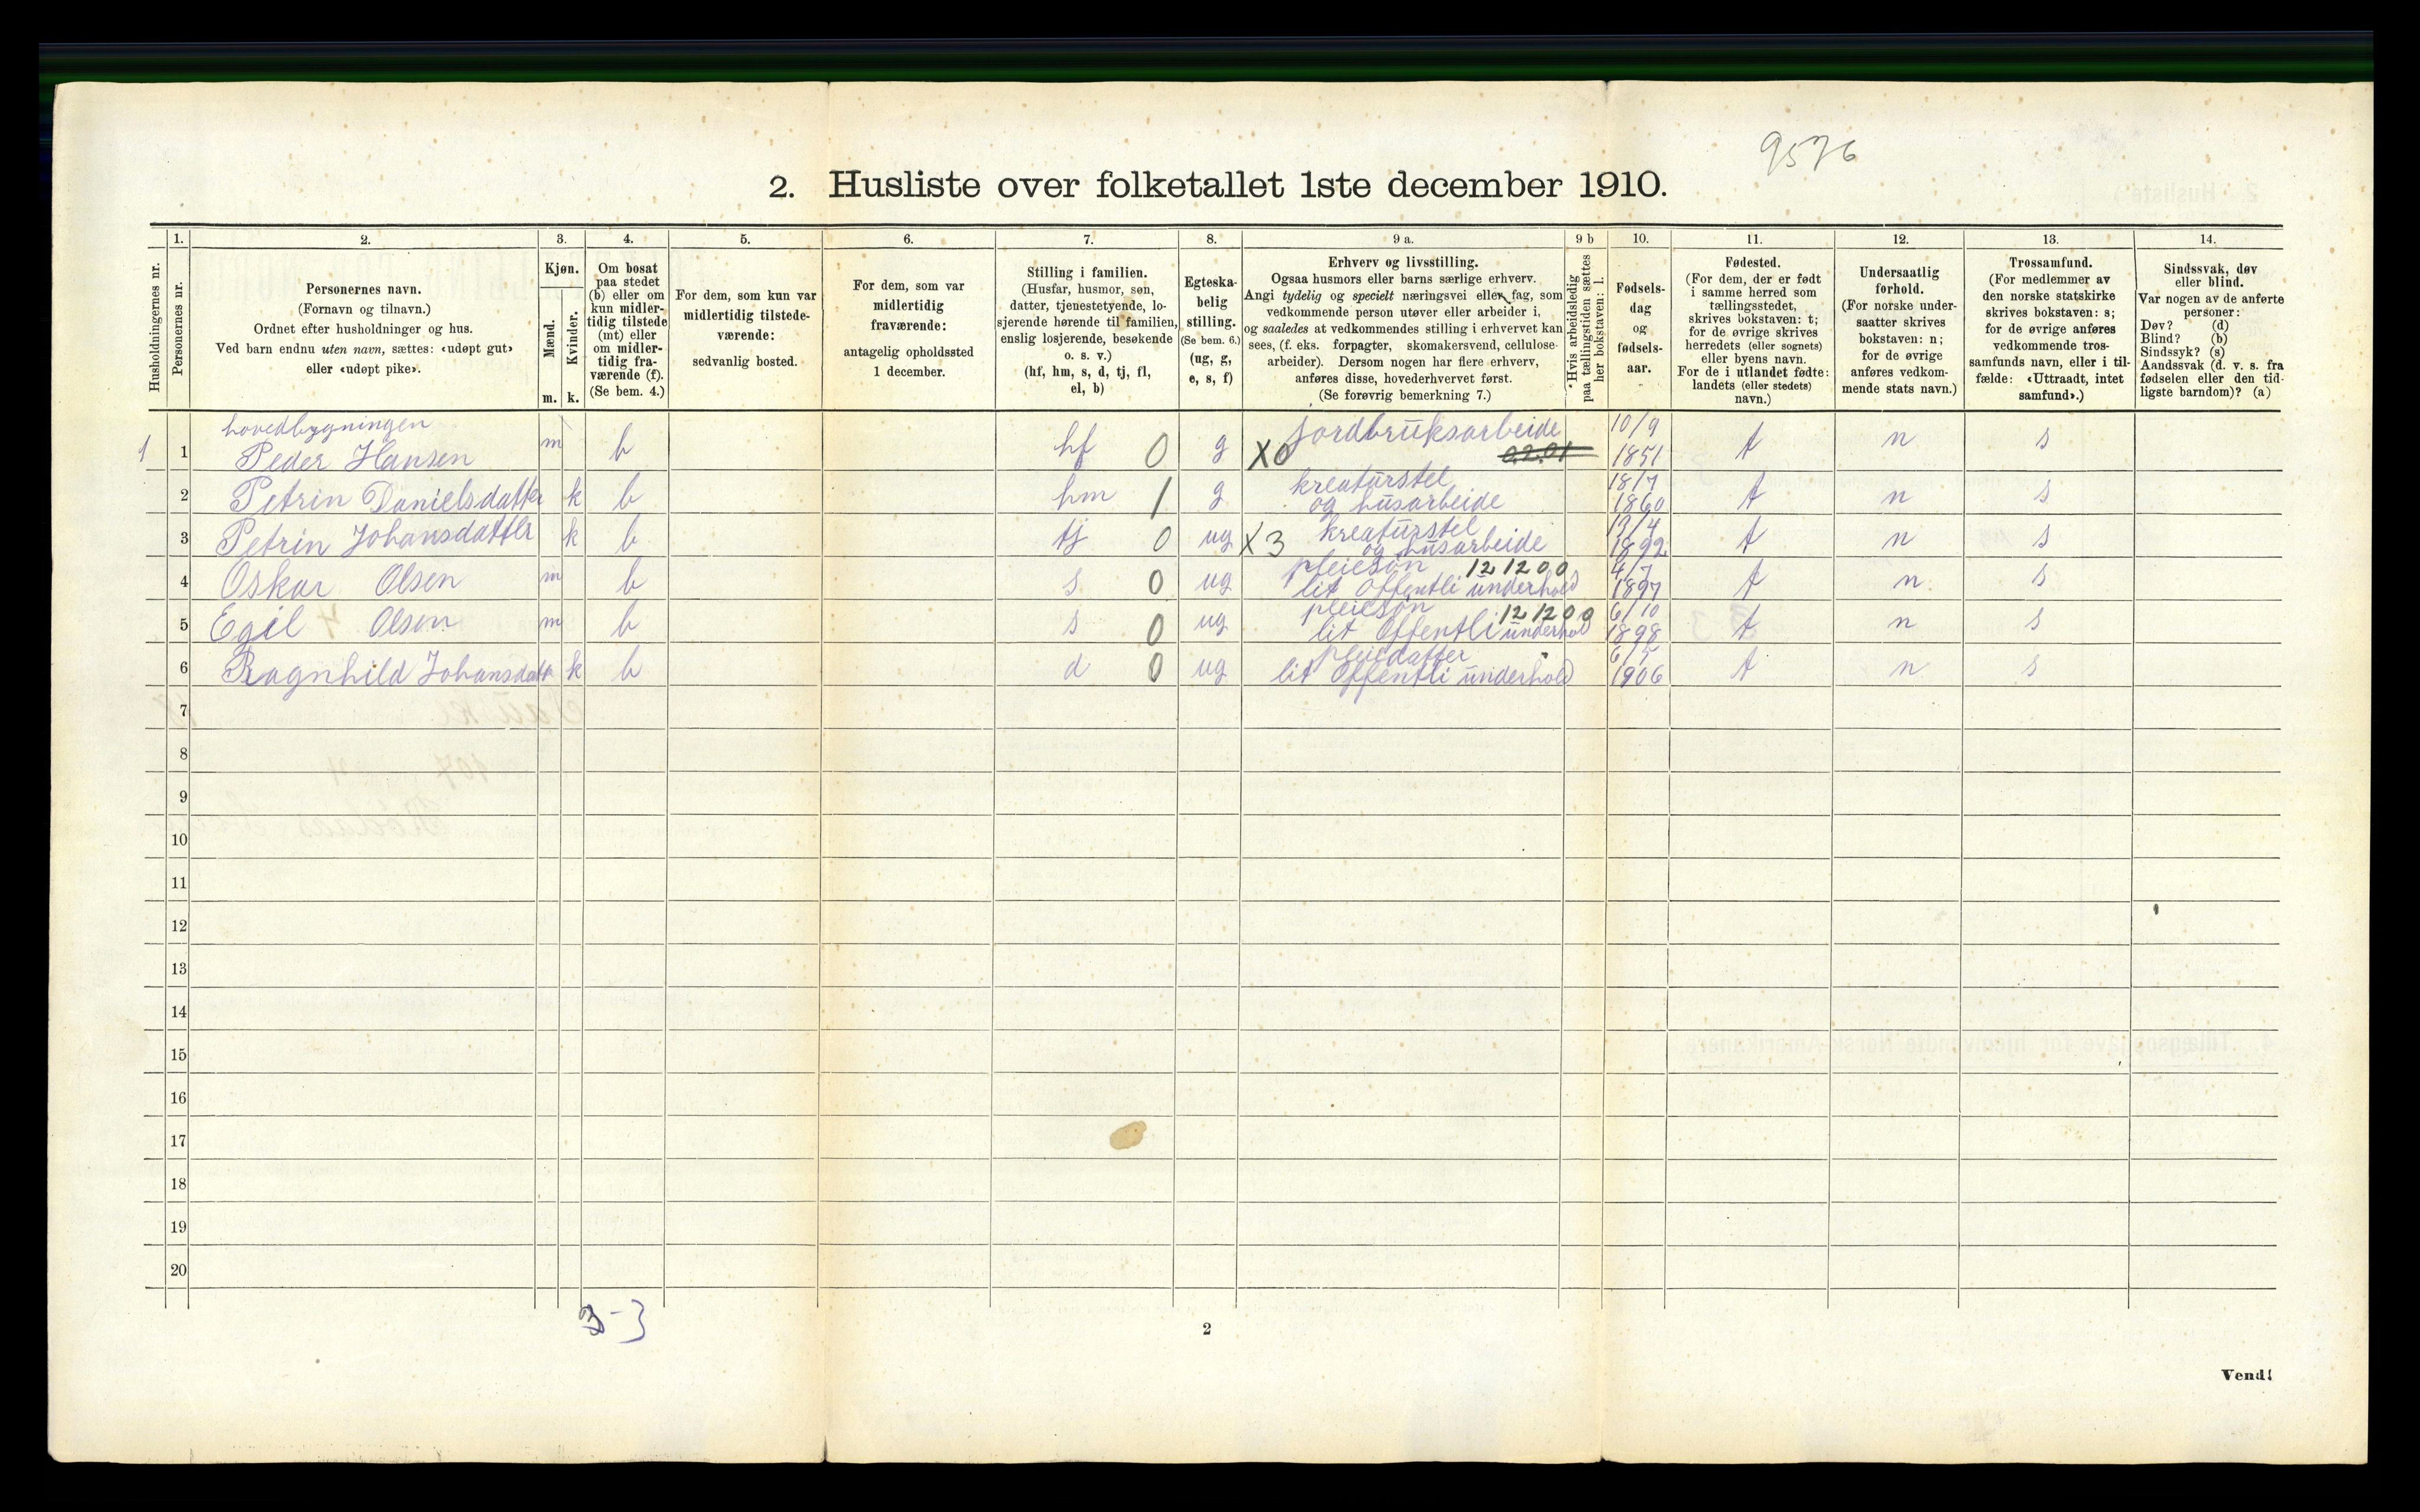 9576
2. Husliste over folketallet 1ste december 1910.
Husholdningernes nr.
1.
Personernes nr.
2.
Personernes navn.
(Fornavn og tilnavn.)
Ordnet efter husholdninger og hus.
Ved barn endnu uten navn, sættes: «udøpt gut»
eller «udøpt pike».
3.
Kjøn.
Mænd.
Kvinder.
m. k.
4.
Om bosat
paa stedet
(b) eller om
kun midler-
tidig tilstede
(mt) eller
om midler-
tidig fra-
værende (f).
(Se bem. 4.)
5.
For dem, som kun var
midlertidig tilstede-
værende:
sedvanlig bosted.
6.
For dem, som var
midlertidig
fraværende:
antagelig opholdssted
1 december.
7.
Stilling i familien.
(Husfar, husmor, søn,
datter, tjenestetyende, lo-
sjerende hørende til familien,
enslig losjerende, besøkende
o. s. v.)
(hf, hm, s, d, tj, fl,
el, b)
8.
Egteska-
belig
stilling.
(Se bem. 6.)
(ug, g,
e, s, f)
9 a.
Erhverv og livsstilling.
Ogsaa husmors eller barns særlige erhverv.
Angi tydelig og specielt næringsvei eller fag, som
vedkommende person utøver eller arbeider i,
og saaledes at vedkommendes stilling i erhvervet kan
sees, (f. eks. forpagter, skomakersvend, cellulose-
arbeider). Dersom nogen har flere erhverv,
anføres disse, hovederhvervet først.
(Se forøvrig bemerkning 7.)
9 b
Hvis arbeidsledig
paa tællingstiden sættes
her bokstaven: l.
10.
Fødsels-
dag
og
fødsels-
aar.
11.
Fødested.
(For dem, der er født
i samme herred som
tællingsstedet,
skrives bokstaven: t;
for de øvrige skrives
herredets (eller sognets)
eller byens navn.
For de i utlandet fødte:
landets (eller stedets)
navn.)
12.
Undersaatlig
forhold.
(For norske under-
saatter skrives
bokstaven: n;
for de øvrige
anføres vedkom-
mende stats navn.)
13.
Trossamfund.
(For medlemmer av
den norske statskirke
skrives bokstaven: s;
for de øvrige anføres
vedkommende tros-
samfunds navn, eller i til-
fælde: «Uttraadt, intet
samfund».)
14.
Sindssvak, døv
eller blind.
Var nogen av de anførte
personer:
Døv? (d)
Blind? (b)
Sindssyk? (s)
Aandssvak (d. v. s. fra
fødselen eller den tid-
ligste barndom)? (a)
hovedbygningen
1 1 Peder Hansen m b hf 0 g X0 jordbruksarbeide 0.2.01 10/9 1851 t n s
2 Petrin Danielsdatter k b hm 1 g kreaturstel og husarbeide 18/7 1860 t n s
3 Petrin Johansdatter k b tj 0 ug X3 kreaturstel og husarbeide 13/4 1892 t n s
4 Oskar Olsen m b s 0 ug pleiesøn 12 12 0 0 lit Offentli underhold 4/7 1897 t n s
5 Egil Olsen m b s 0 ug pleiesøn 12 12 0 0 lit Offentli underhol 6/10 1898 t n s
6 Ragnhild Johansdatt k b d 0 ug pleiedatter lit Offentli underhold 6/5 1906 t n s
7
8
9
10
11
12
13
14
15
16
17
18
19
20
3-3
2
Vend!